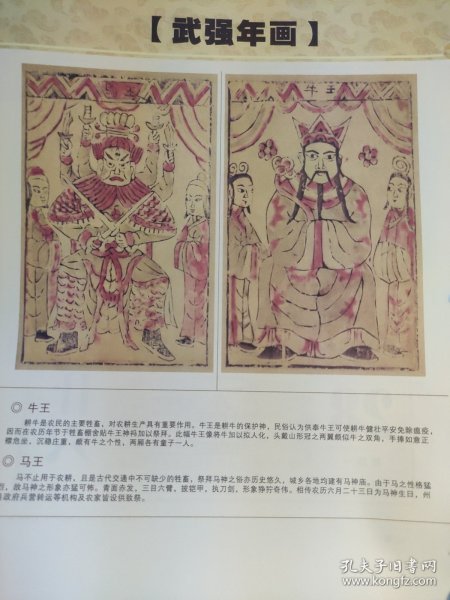 【武强年画】
牛王
◎ 牛王
耕牛是农民的主要牲畜，对农耕生产具有重要作用。牛王是耕牛的保护神，民俗认为供奉牛王可使耕牛健壮平安免除瘟疫，
因而在农历年节于牲畜棚舍贴牛王神祃加以祭拜。此幅牛王像将牛加以拟人化，头戴山形冠之两翼颇似牛之双角，手捧如意正
襟危坐，沉稳庄重，颇有牛之个性，两厢各有童子一人。
◎ 马王
马不止用于农耕，且是古代交通中不可缺少的牲畜，祭拜马神之俗亦历史悠久，城乡各地均建有马神庙。由于马之性格猛
烈，故马神之形象亦猛可怖。青面赤发，三目六臂，披铠甲，执刀剑，形象狰狞奇伟。相传农历六月二十三日为马神生日，州
县政府兵营转运等机构及农家皆设供致祭。
孔夫子旧书网
www.kongfz.com